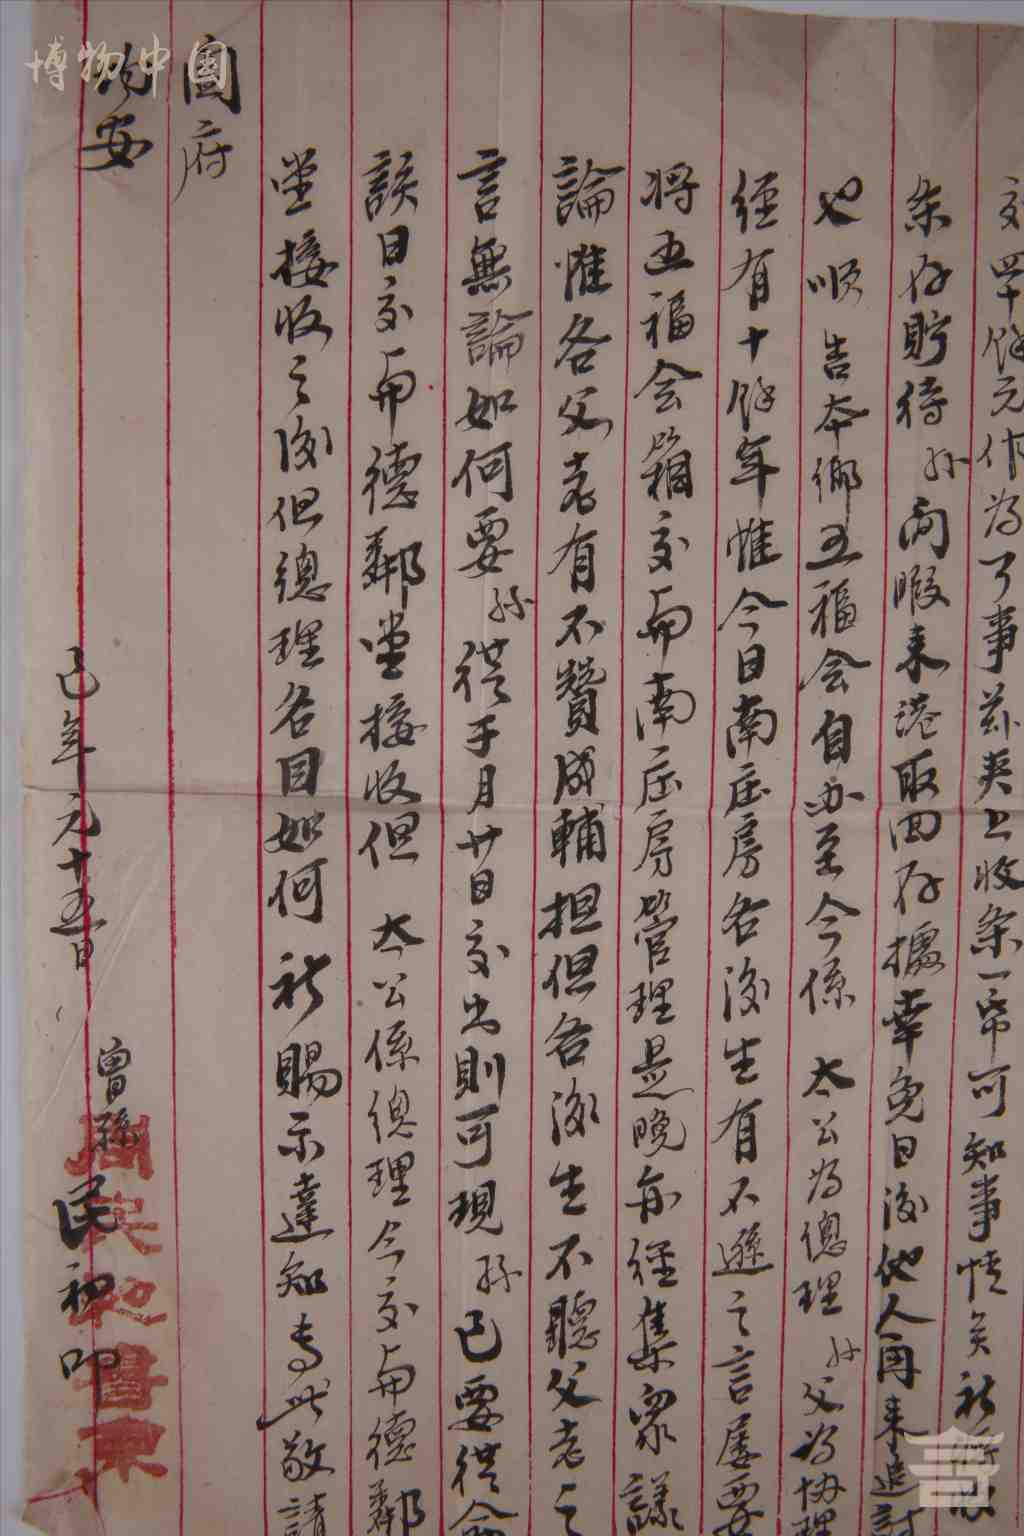 交四十餘元作為了事茲夾上收条一帋可知事情矣祈將
条存貯待孙閑暇来港取回存據幸免日後他人再来追討
也順告本鄉五福会自办至今係太公為總理孙父為协理
經有十餘年惟今日南庄房各後生有不遜之言屡要
将五福会箱交与南庄房管理是晚亦經集眾議
論惟各父老有不贊成輔担但各後生不聽父老之
言無論如何要孙從于月廿日交出則可現孙已要從命
該日交与德鄰堂接收但太公係總理今交与德鄰
堂接收之後但總理名目如何祈賜示達知专此敬請
圓府
均安
己年元十五日 曾孫民初叩
周民初書柬
博物中国